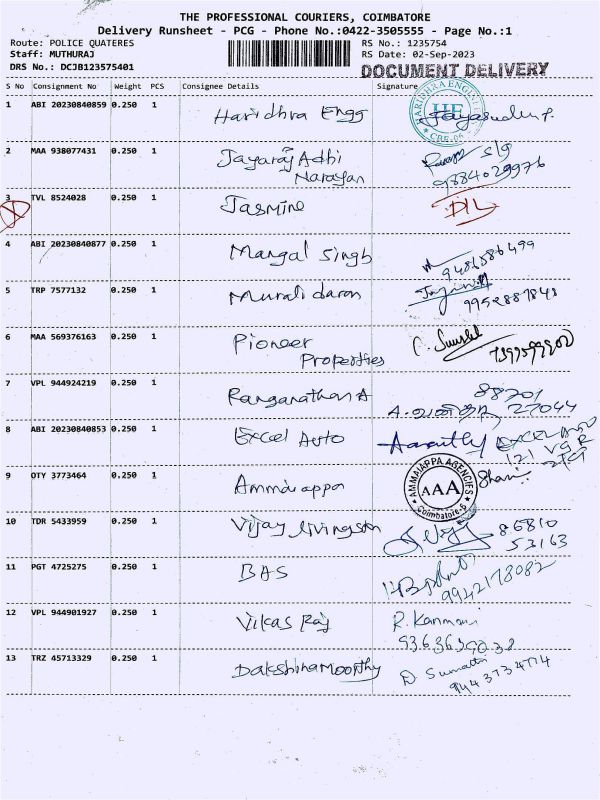 THE PROFESSIONAL COURIERS, COIMBATORE
Delivery Runsheet - PCG - Phone No.:0422-3505555 - Page No.:1
Route: POLICE QUATERES RS No.: 1235754
Staff: MUTHURAJ RS Date: 02-Sep-2023
DRS No.: DCJB123575401 DOCUMENT DELIVERY
S No Consignment No Weight PCS Consignee Details Signature
1 ABI 20230840859 0.250 1 Haridhra Engg
HARIDHRA ENGG HE CBE-06
2 MAA 938077431 0.250 1 Jayaraj Adhi
Narayan 9884029976
3 TVL 8524028 0.250 1 Jasmine D/L
4 ABI 20230840877 0.250 1 Mangal Singh
9486586499
5 TRP 7577132 0.250 1 Muralidaran
9952887848
6 MAA 569376163 0.250 1 Pioneer
Properties
7 VPL 944924219 0.250 1 Ranganathan A 88701
27044
8 ABI 20230840853 0.250 1 Excel Auto
9 OTY 3773464 0.250 1 Ammaiappa
AMMAIAPPA AGENCIES AAA Coimbatore-6
10 TDR 5433959 0.250 1 Vijay Livingston 86810
53163
11 PGT 4725275 0.250 1 BAS
9942178082
12 VPL 944901927 0.250 1 Vikas Raj R. Kanmani
9363639038
13 TRZ 45713329 0.250 1 Dakshinamoorthy D Sumathi
9443734714